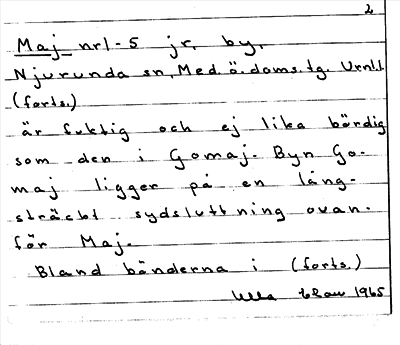 2
Maj nr 1-5 jr, by,
Njurunda sn, Med. ö. doms. tg. Vrnll
(forts.)
är fuktig och ej lika bördig
som den i Gomaj. Byn Go-
maj ligger på en lång-
sträckt sydsluttning ovan-
för Maj.
Bland bönderna i (forts.)
Ulla 1965